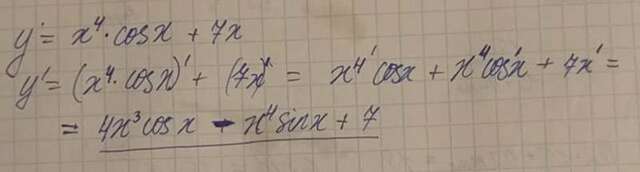 y = x⁴ · cosx + 7x
y' = (x⁴ · cosx)' + (7x)' = x⁴' cosx + x⁴ cos'x + 7x' =
= 4x³ cosx - x⁴ sinx + 7